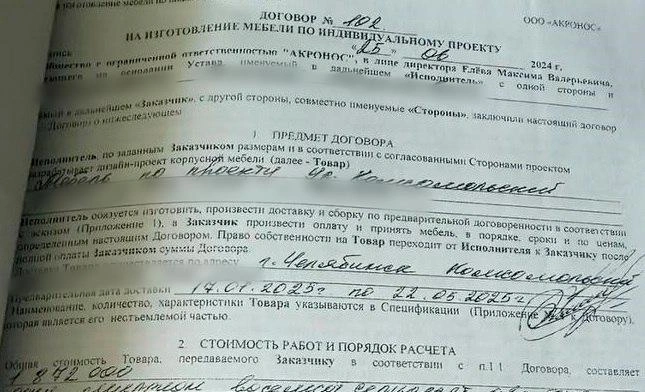 ДОГОВОР № 102
ООО «АКРОНОС»
НА ИЗГОТОВЛЕНИЕ МЕБЕЛИ ПО ИНДИВИДУАЛЬНОМУ ПРОЕКТУ
«25» 06 2024 г.
Общество с ограниченной ответственностью "АКРОНОС", в лице директора Елёва Максима Валерьевича,
на основании Устава, именуемый в дальнейшем «Исполнитель» с одной стороны и
в дальнейшем «Заказчик», с другой стороны, совместно именуемые «Стороны», заключили настоящий договор
Договор о нижеследующем
1 ПРЕДМЕТ ДОГОВОРА
Исполнитель, по заданным Заказчиком размерам и в соответствии с согласованными Сторонами проектом
разрабатывает дизайн-проект корпусной мебели (далее - Товар)
Мебель по проекту Комсомольский
Исполнитель обязуется изготовить, произвести доставку и сборку по предварительной договоренности в соответствии
с эскизом (Приложение 1), а Заказчик произвести оплату и принять мебель, в порядке, сроки и по ценам,
определенным настоящим Договором. Право собственности на Товар переходит от Исполнителя к Заказчику после
полной оплаты Заказчиком суммы Договора.
Доставка Товара осуществляется по адресу г. Челябинск Комсомольский
Предварительная дата доставки 17.01.2025г по 22.05.2025г
Наименование, количество, характеристики Товара указываются в Спецификации (Приложение к Договору),
которая является его неотъемлемой частью.
2. СТОИМОСТЬ РАБОТ И ПОРЯДОК РАСЧЕТА
Общая стоимость Товара, передаваемого Заказчику в соответствии с п.1.1 Договора, составляет
1 872 000
миллион восемьсот семьдесят